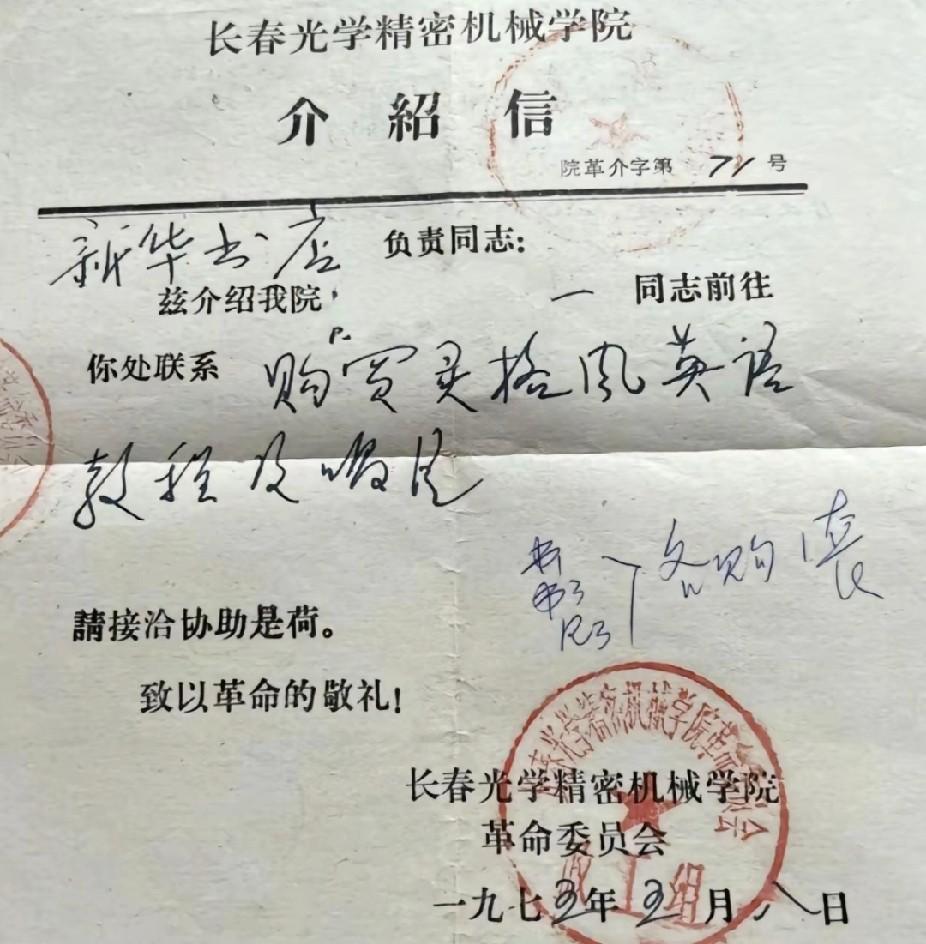 长春光学精密机械学院
介紹信
院革介字第 71 号
新华书店 负责同志：
兹介绍我院 一 同志前往
你处联系 购买灵格风英语
教程及唱片
各购壹
請接洽协助是荷。
致以革命的敬礼！
长春光学精密机械学院
革命委员会
一九七五年五月八日